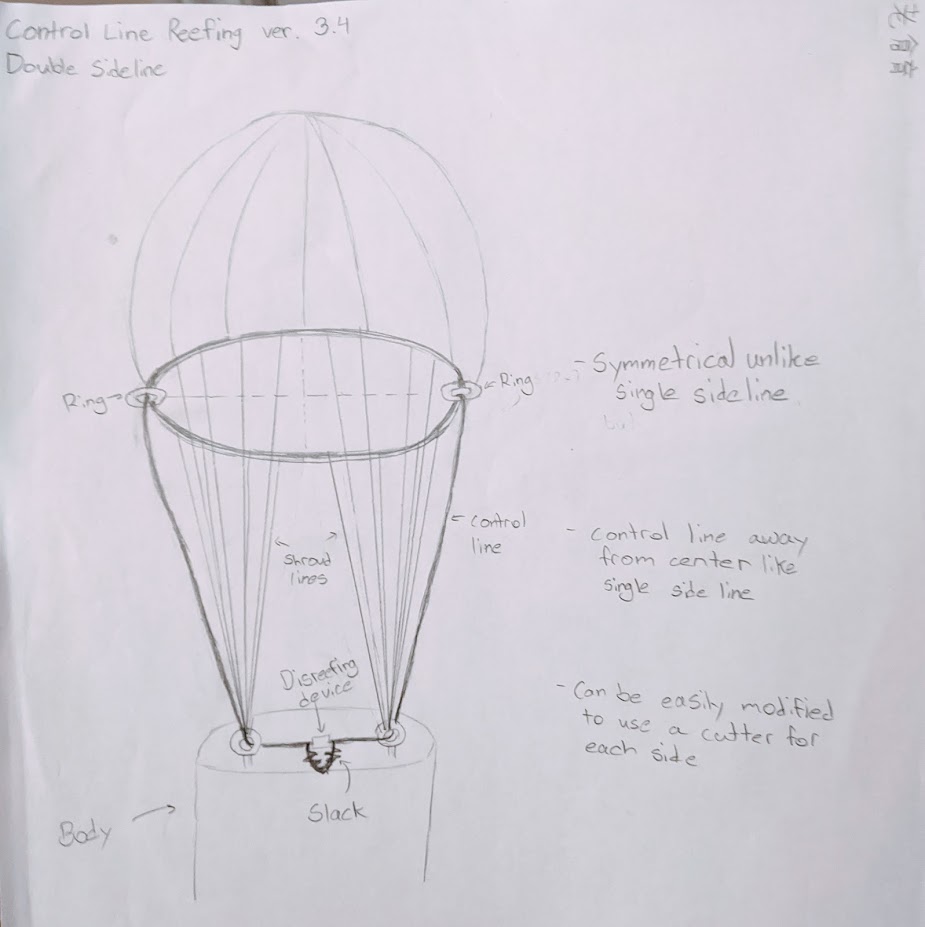 Control Line Reefing ver. 3.4
Double Sideline
Ring
Ring
- Symmetrical unlike
single sideline
control
line
- control line away
from center like
single side line
shroud
lines
Disreefing
device
- Can be easily modified
to use a cutter for
each side
Slack
Body